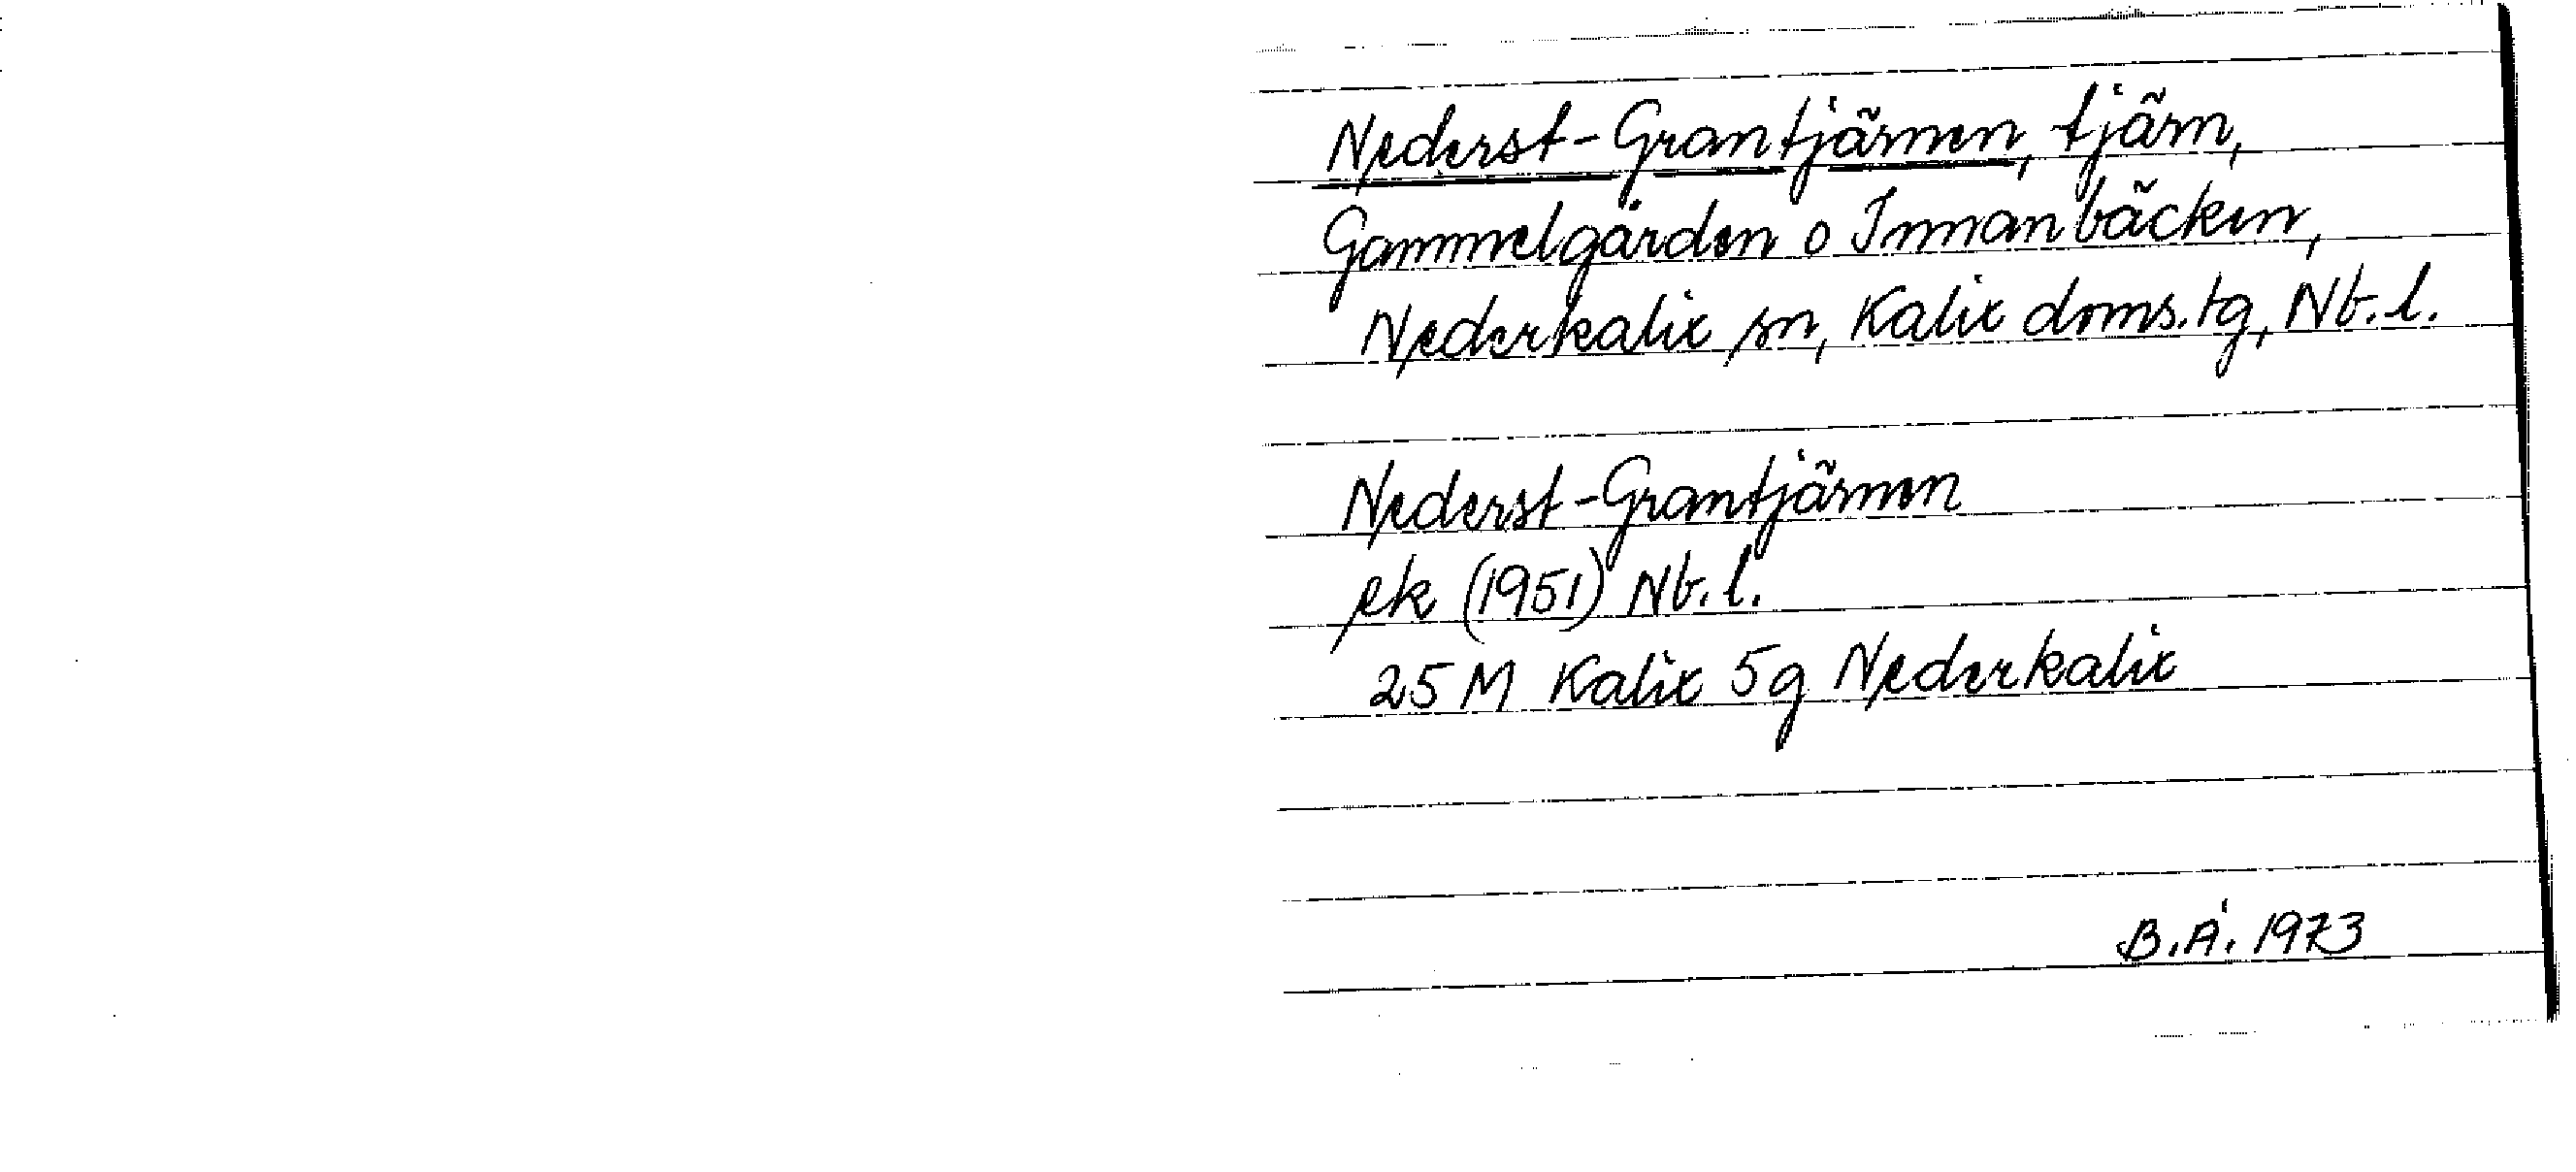 Nederst-Grantjärnen, tjärn,
Gammelgården o Innanbäcken,
Nederkalix sn, Kalix doms.tg, Nb.l.
Nederst-Grantjärnen
ek (1951) Nb.l.
25 M Kalix 5g Nederkalix
B.Å. 1973